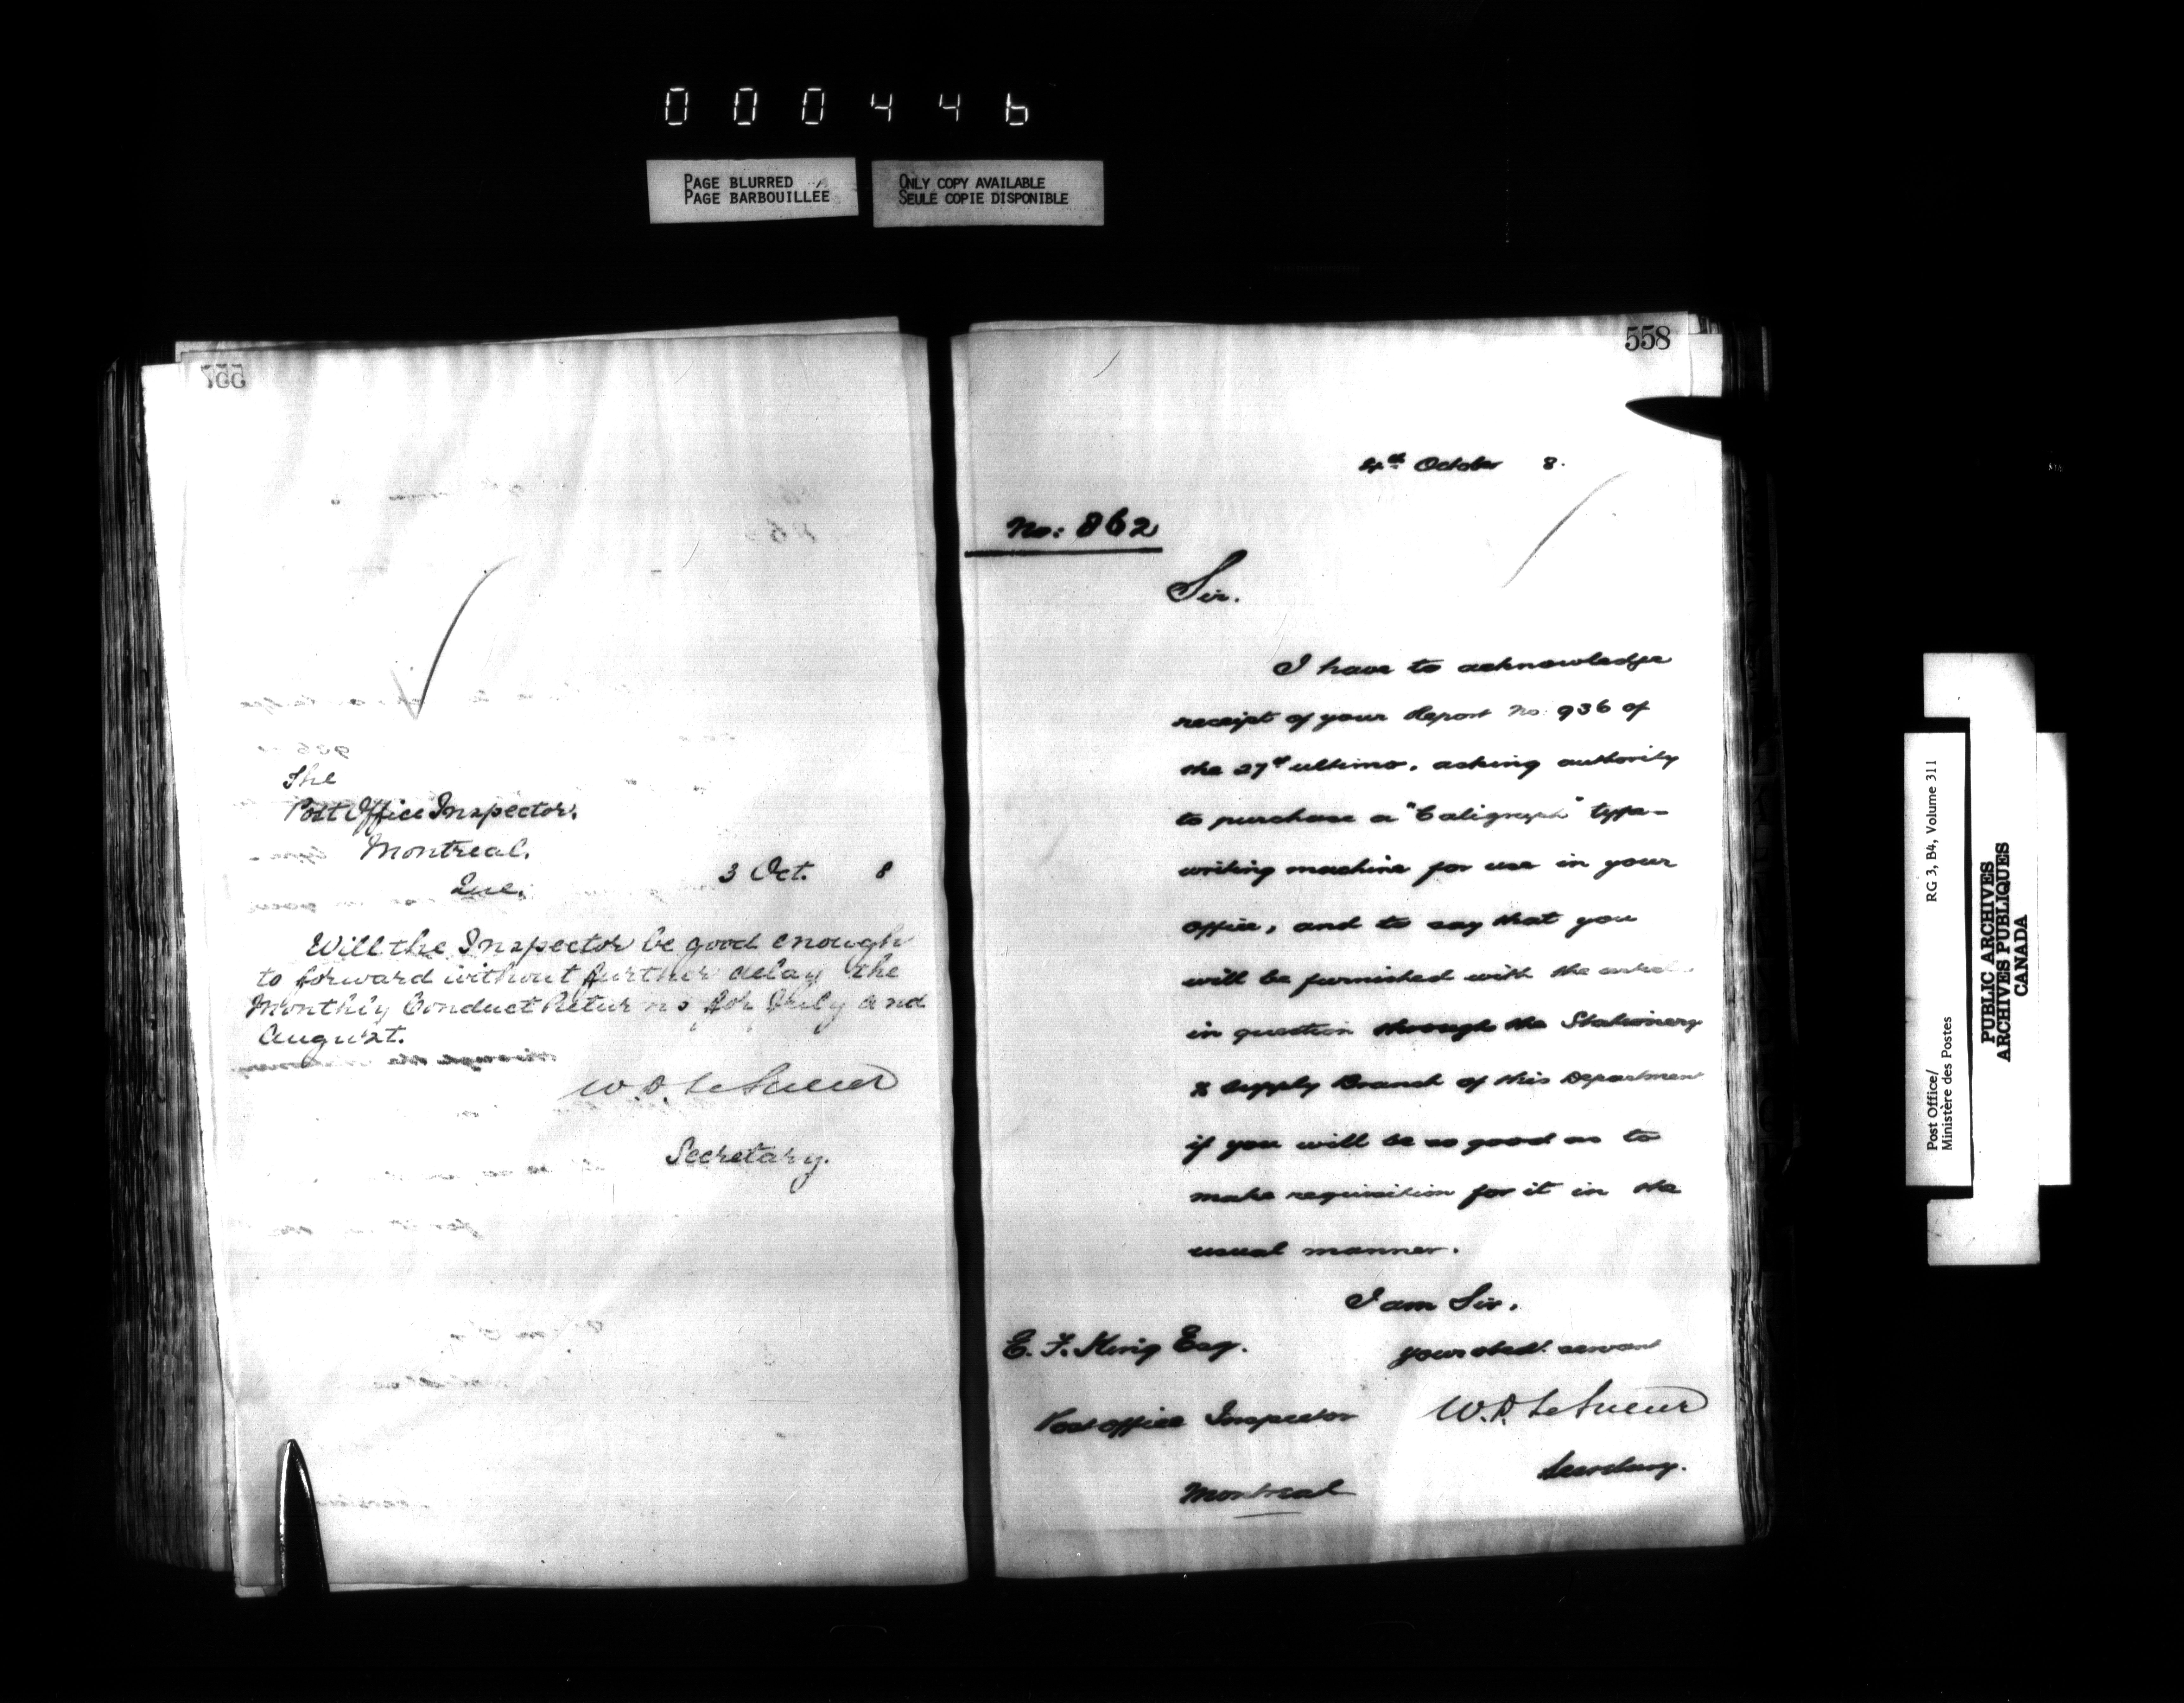 000446
PAGE BLURRED
PAGE BARBOUILLEE
ONLY COPY AVAILABLE
SEULE COPIE DISPONIBLE
557
The
Post Office Inspector,
Montreal,
Que,
3 Oct. 8
Will the Inspector be good enough
to forward without further delay the
Monthly Conduct Returns for July and
August.
W. D. LeSueur
Secretary.
558
4th October 8.
No: 862
Sir.
I have to acknowledge
receipt of your Report No. 936 of
the 27th ultimo, asking authority
to purchase a "Caligraph" type-
writing machine for use in your
office, and to say that you
will be furnished with the
in question through the Stationery
& Supply Branch of this Department
if you will be so good as to
make requisition for it in the
usual manner.
I am Sir,
your obedt. servant
W. D. LeSueur
Secretary.
E. F. King Esq.
Post office Inspector
Montreal
Post Office/
Ministère des Postes
RG 3, B4, Volume 311
PUBLIC ARCHIVES
ARCHIVES PUBLIQUES
CANADA